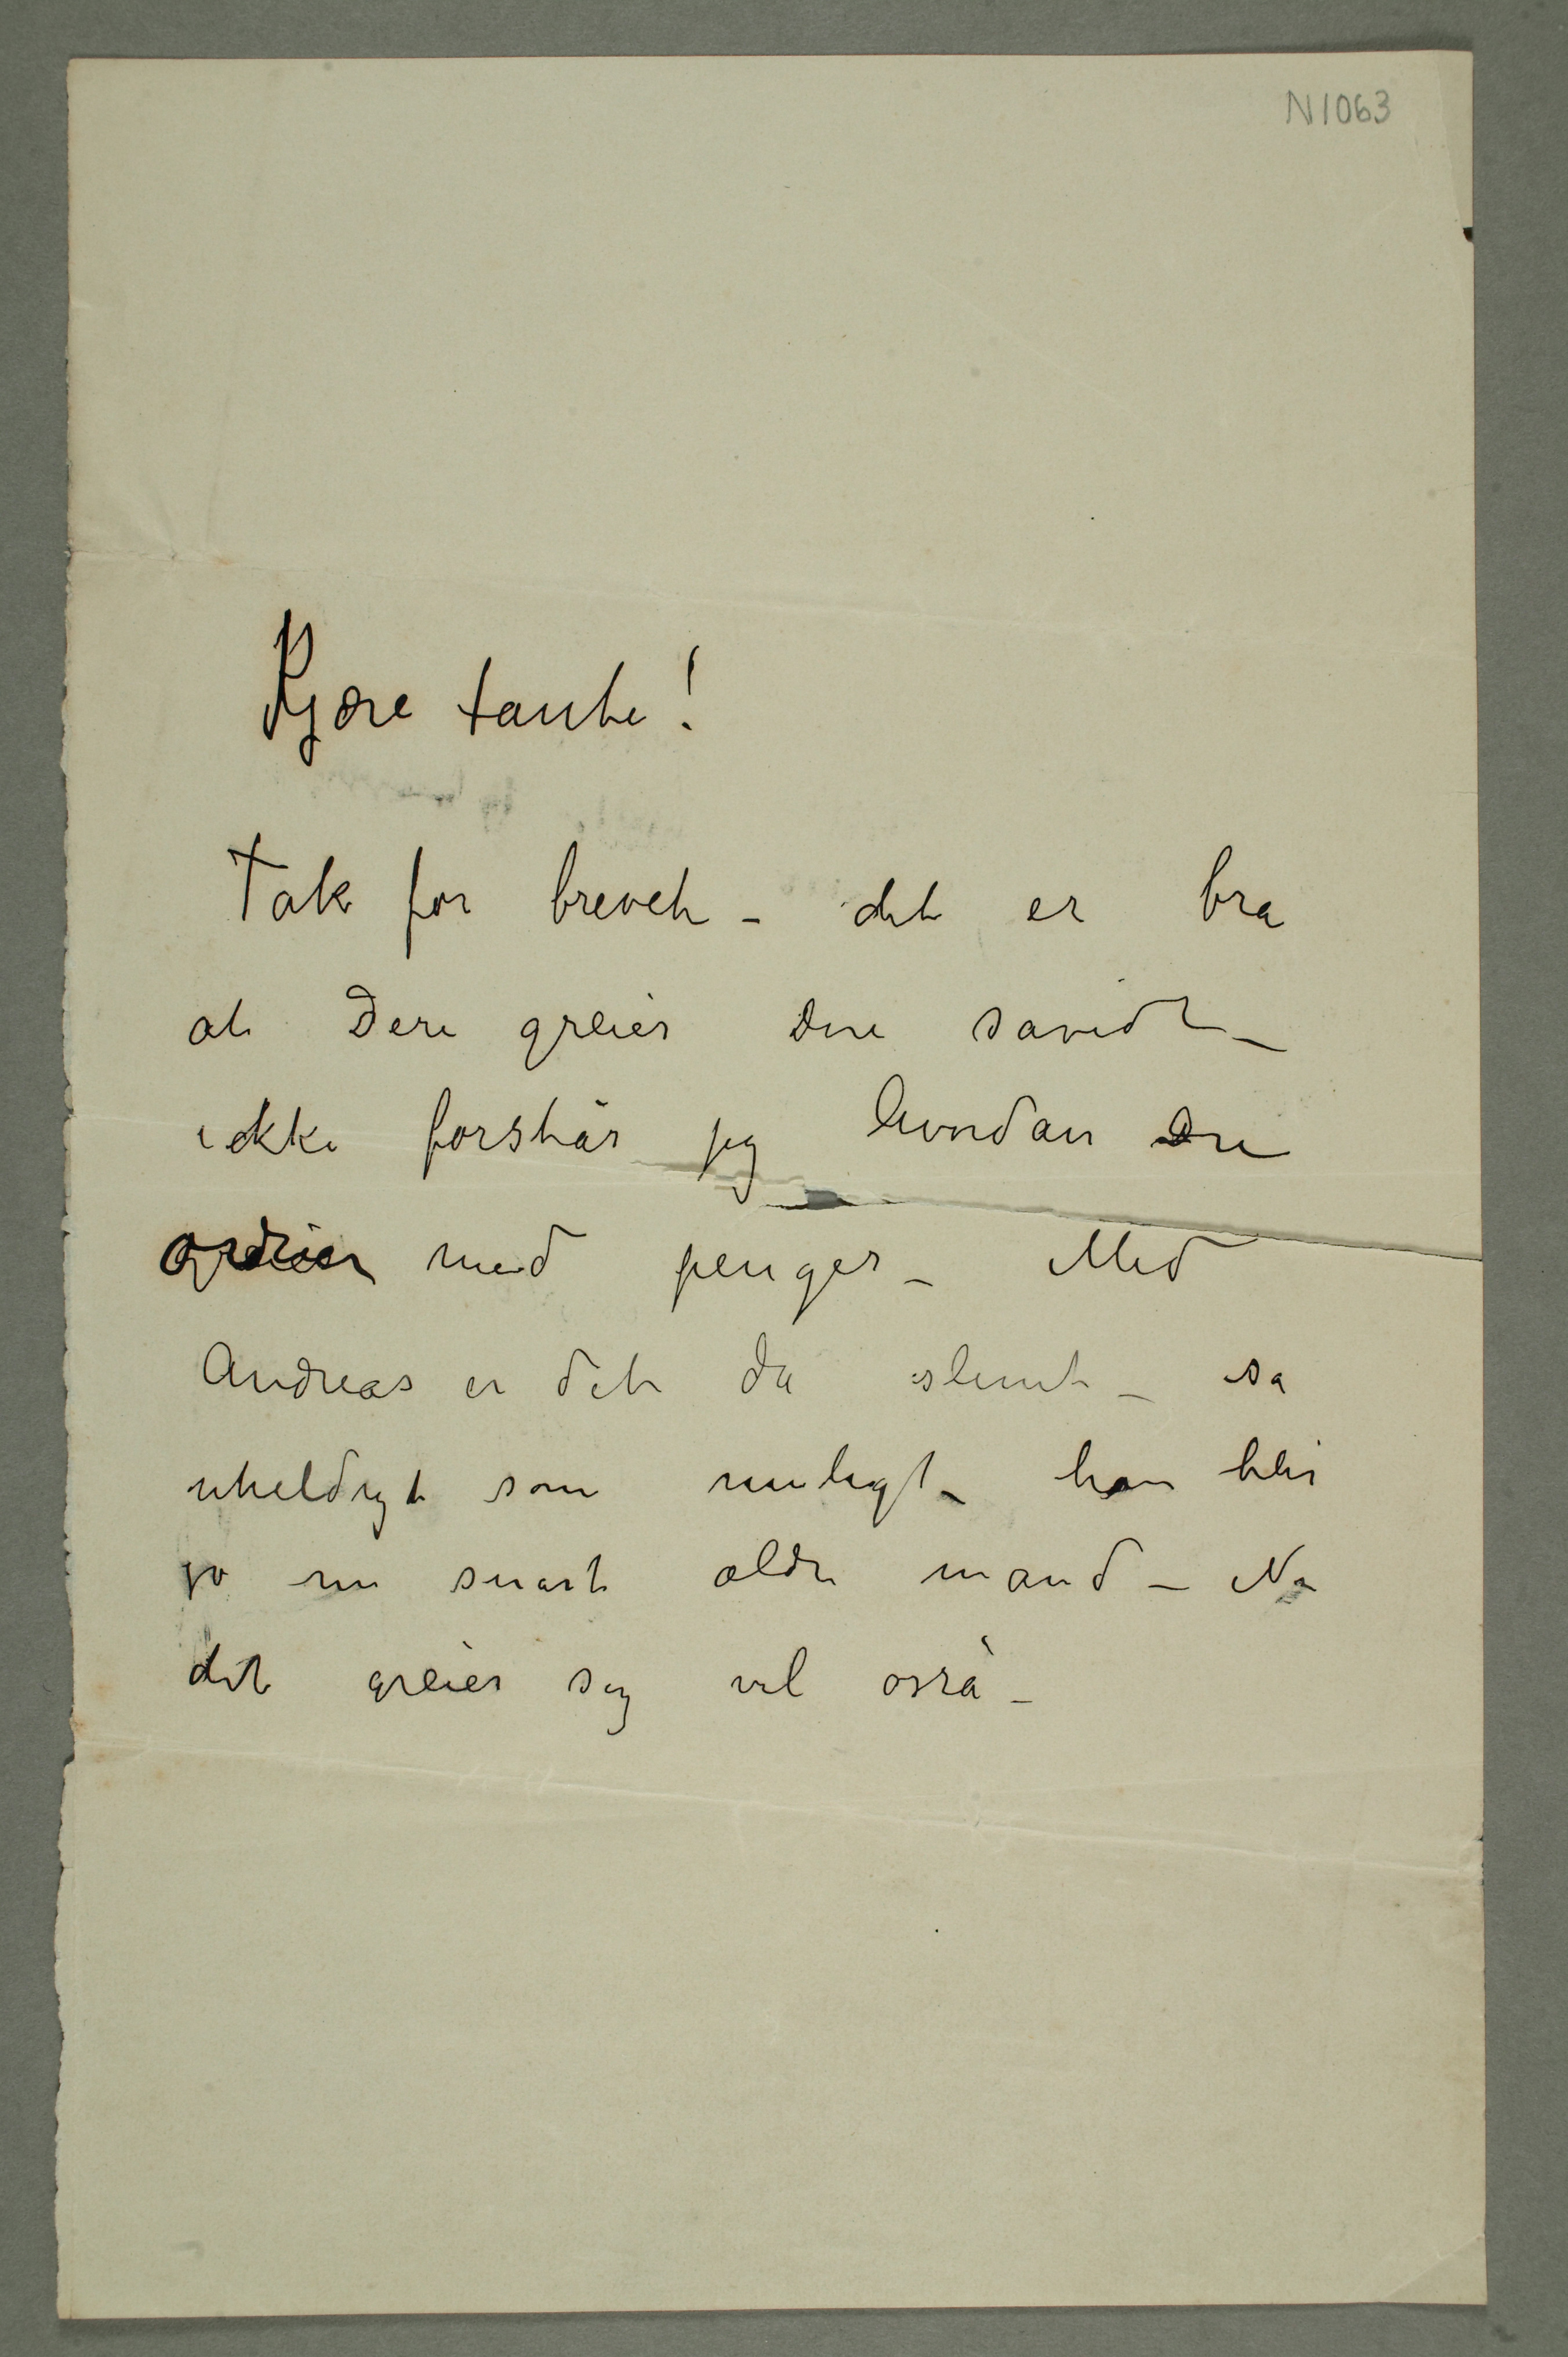 N1063
Kjære tante!
Tak for brevet – det er bra
at Dere greier Dere savidt –
ikke forstår jeg hvordan Du
greier med penger – Med
Andreas er det da slemt – sa
uheldigt som muligt – han blir
jo nu snart ældre mand – Na
det greier sig vel osså –